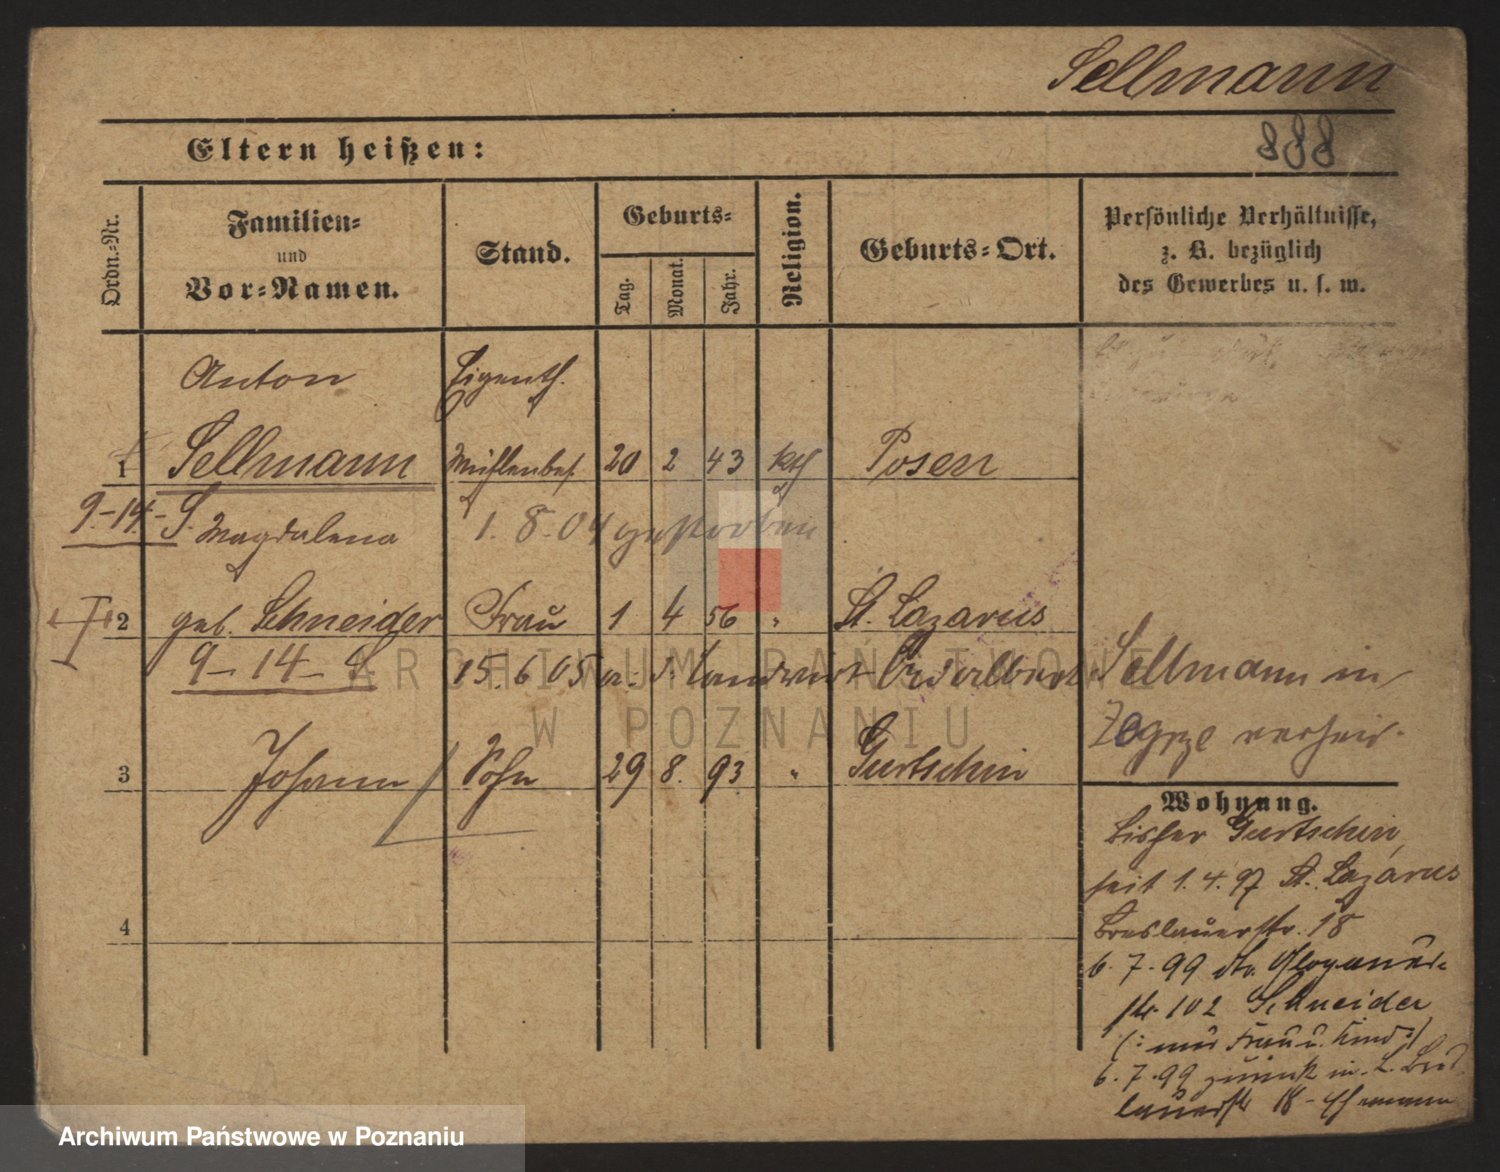 Sellmann
Eltern heißen:
888
Ordn.-Nr.
Familien-
und
Vor-Namen.
Stand.
Geburts-
Tag.
Monat.
Jahr.
Religion.
Geburts-Ort.
Persönliche Verhältnisse,
z. B. bezüglich
des Gewerbes u. s. w.
Anton Eigenth.
1 Sellmann Mühlenbes. 20 2 43 kth Posen
9.-14.- S. Magdalena 1. 8. 04 gestorben
2 geb. Schneider Frau 1 4 56 " St. Lazarus
9-14- S 15.6.05 Landwirt Sellmann in
Zegrze verheir.
3 Johann Sohn 29 8. 93 " Gurtschin
4
Wohnung.
bisher Gurtschin,
seit 1. 4. 97 St. Lazarus
Breslauerstr. 18
6. 7. 99 do. Glogauer-
str. 102 Schneider
(: nur Frau u. Kind :)
6. 7. 99 zurück in L. Bres-
lauerstr 18 - Ehemann
ARCHIWUM PAŃSTWOWE
W POZNANIU
Archiwum Państwowe w Poznaniu